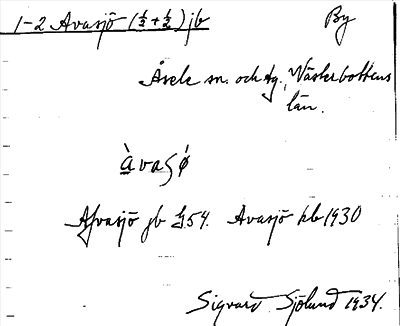 1-2 Avasjö (½+½) jb By
Åsele sn. och tg., Västerbottens
län.
àvaʂǿ
Afvasjö jb 54. Avasjö kb 1930
Sigvard Sjölund 1934.